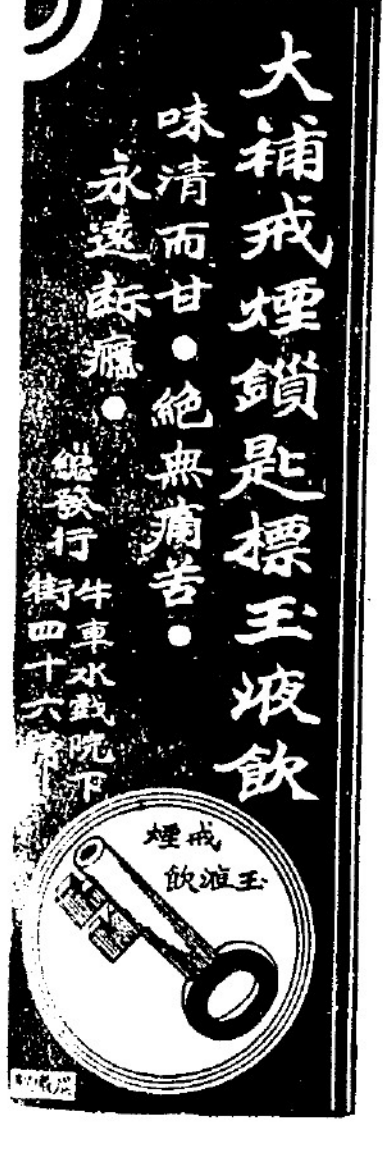 大補戒煙鎖匙標玉液飲
味清而甘●絕無痛苦●
永遠斷癮●
總發行
牛車水戲院下
街四十六號
戒煙
玉液飲